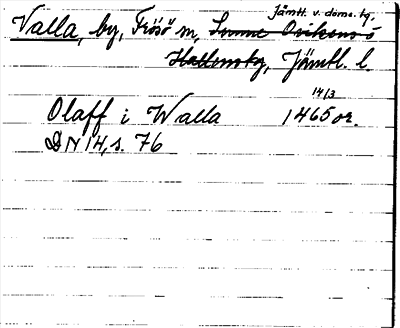 Jämtl. v. doms. tg.
Valla, by, Frösö sn, Sunne Ovikens o
Hallens tg, Jämtl. l.
14/3
Olaff i Walla 1465 or.
DN 14, s. 76